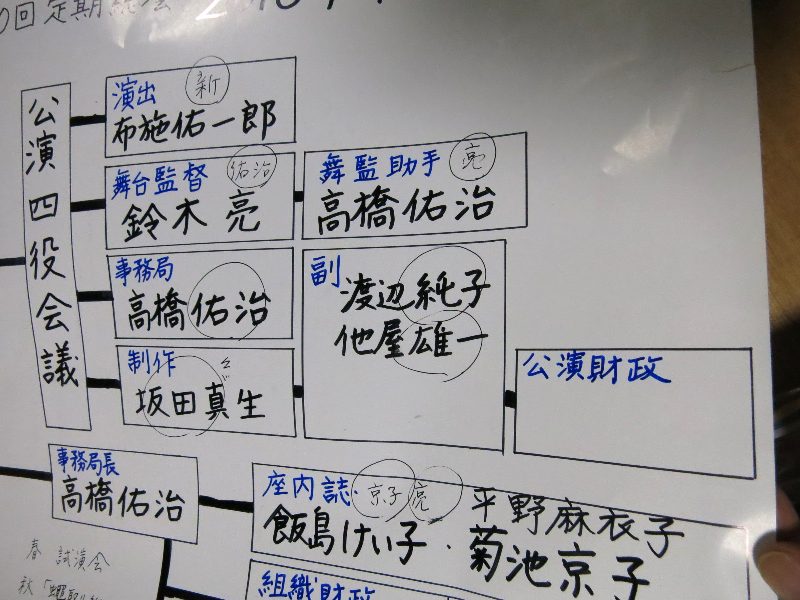 回定期総会
公演四役会議
演出 新
布施佑一郎
舞台監督 佑治
鈴木亮
舞監助手 亮
高橋佑治
事務局
高橋佑治
副
渡辺純子
他屋雄一
制作
坂田真生
公演財政
事務局長
高橋佑治
座内誌・京子 亮
飯島けい子・平野麻衣子
菊池京子
組織財政
春 試演会
秋